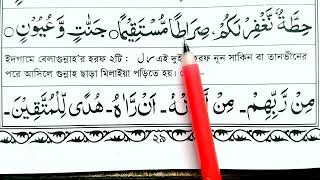 حِطَّةٌ نَّغْفِرْ لَكُمْ۔ صِرَاطًا مُّسْتَقِيْمًا۝ جَنّٰتٍ وَّعُيُوْنٍ۝
ইদগামে বেলাগুন্নাহ'র হরফ ২টি : ر ل এই দুই হরফ নূন সাকিন বা তানভীনের
পরে আসিলে গুন্নাহ ছাড়া মিলাইয়া পড়িতে হয়।
مِنْ رَّبِّهِمْ۔ مِنْ لَّدُنْهُ۔ اَنْ رَّاٰهُ۔ هُدًى لِّلْمُتَّقِيْنَ۔
২৯